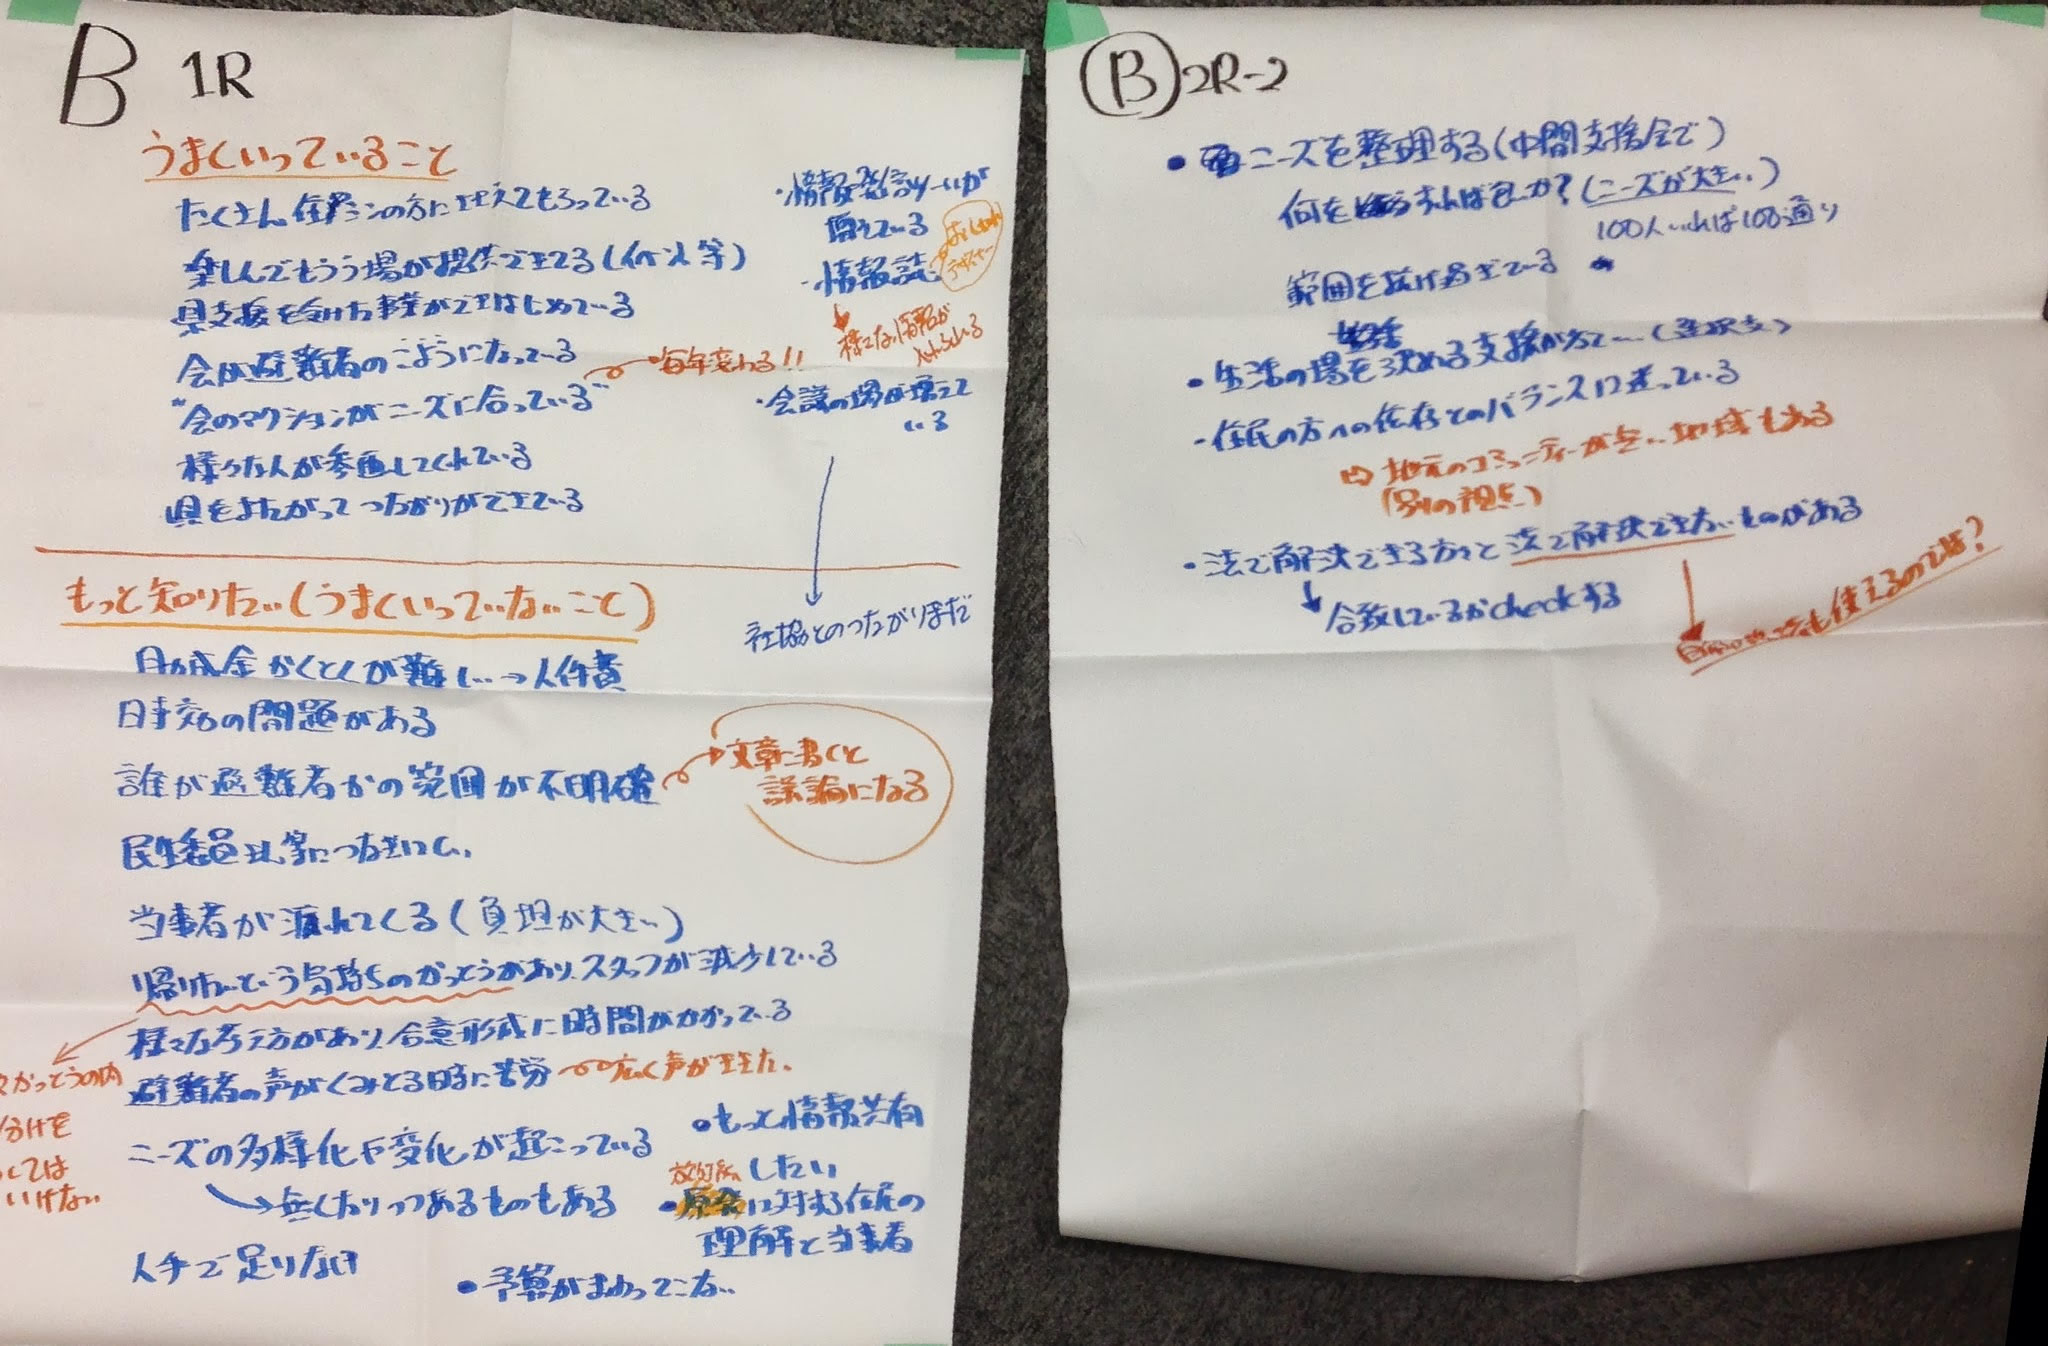 B 1R
うまくいっていること
たくさん の方に支えてもらっている
楽しんでもらう場が提供できてる(イベント等)
県支援を受けた事業ができはじめている
会が避難者の ようになっている
毎年変わる!!
"会のアクションがニーズに合っている"
様々な人が参画してくれている
県をまたがってつながりができている
・情報発信ツールが
増えている
・情報誌
様々な情報が
入れられる
・会議の場が増えて
いる
社協とのつながりまだ
もっと知りたい(うまくいっていないこと)
助成金かくとくが難しい→人件費
時効の問題がある
誰が避難者かの範囲が不明確
文章に書くと
議論になる
民生委員 につなぎにくい
当事者が疲れてくる(負担が大きい)
帰りたいという気持ちのかっとうがあり、スタッフが減少している
様々な考え方があり、合意形成に時間がかかっている
かっとうの内
分けを
しては
いけない
避難者の声がくみとる時に苦労
広く声がきた。
ニーズの多様化や変化が起こっている
→無くなりつつあるものもある
人手で足りなげ
・もっと情報共有
したい
放射能
・原発に対する住民の
理解と当事者
・予算がまわってこない
B 2R-2
・ニーズを整理する(中間支援会で)
何を すれば良いか?(ニーズが大きい)
100人いれば100通り
範囲を拡げ過ぎている
・生活の場を決める支援が (選択支)
・住民の方への依存とのバランスに迷っている
⇨ 地元のコミュニティーが無い地域もある
(別の視点)
・法で解決できる方々と法で解決できないものがある
合致しているかcheckする
も使えるのでは?